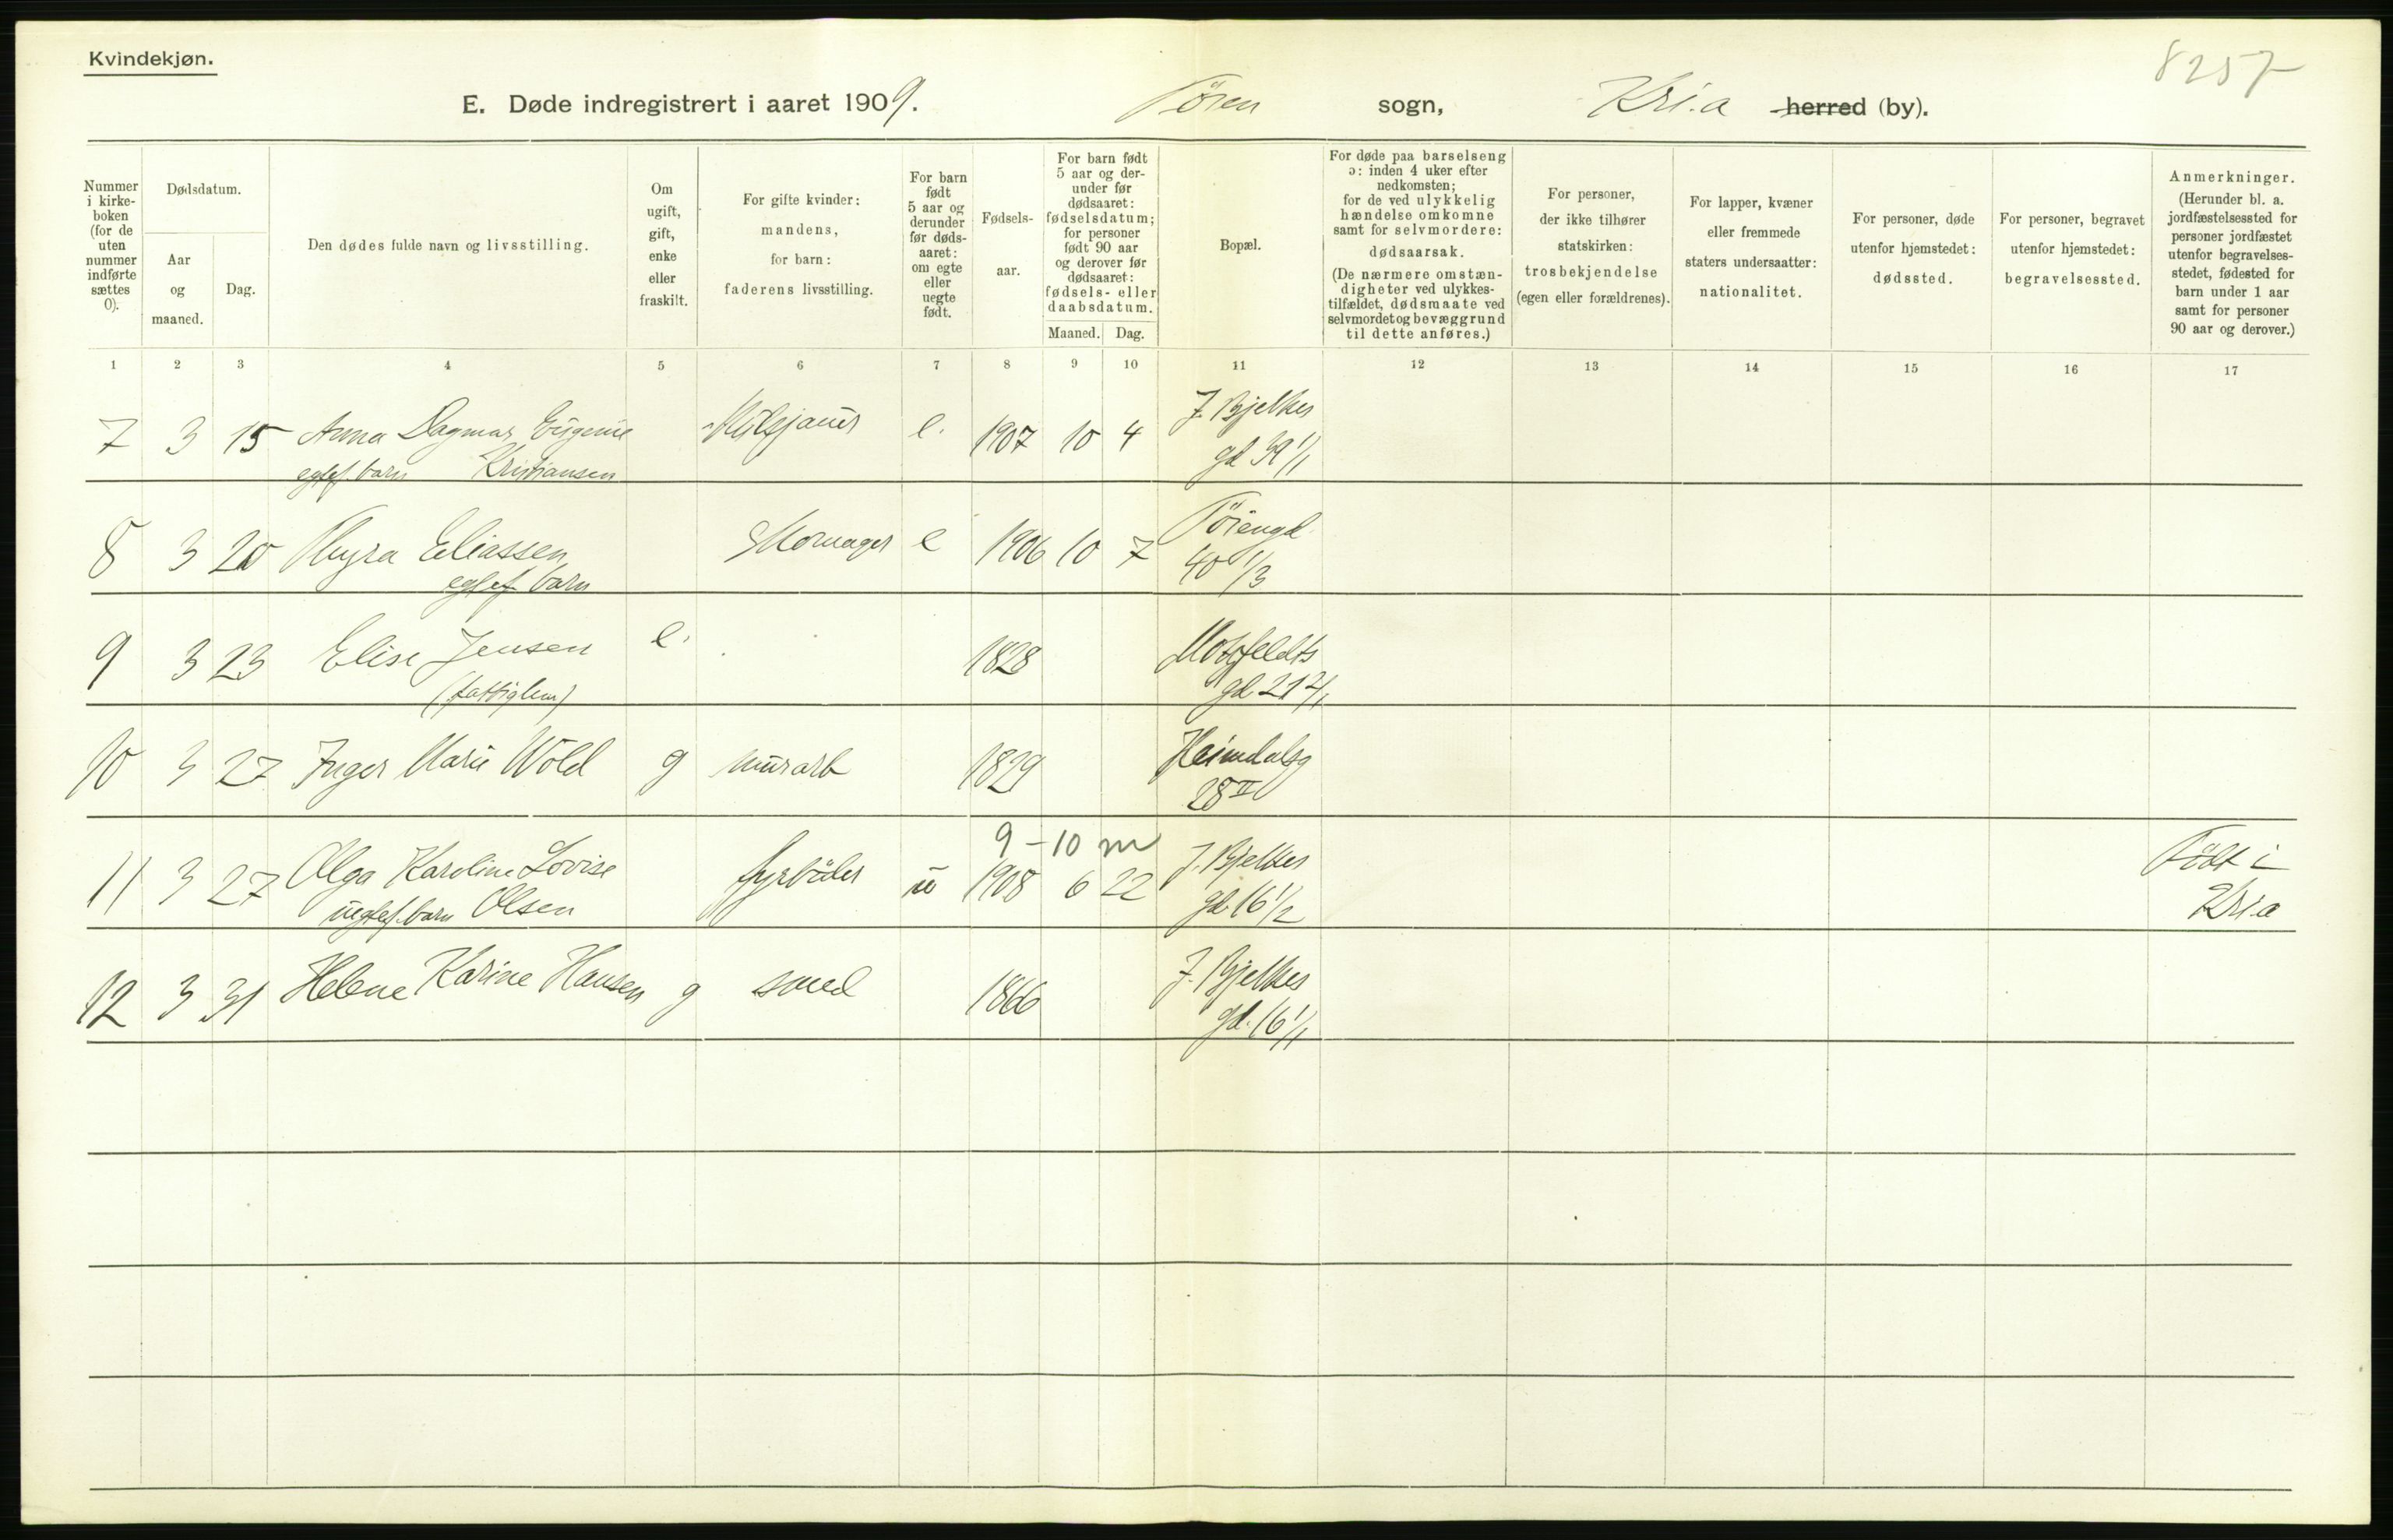 Kvindekjøn.
8257
E. Døde indregistrert i aaret 1909. Töien sogn, Kri.a herred (by).
Nummer i kirke-boken (for de uten nummer indførte sættes 0).
Dødsdatum.
Aar og maaned.
Dag.
Den dødes fulde navn og livsstilling.
Om ugift, gift, enke eller fraskilt.
For gifte kvinder: mandens, for barn: faderens livsstilling.
For barn født 5 aar og derunder før døds-aaret: om egte eller uegte født.
Fødsels-aar.
For barn født 5 aar og der-under før dødsaaret: fødselsdatum; for personer født 90 aar og derover før dødsaaret: fødsels- eller daabsdatum.
Maaned. Dag.
Bopæl.
For døde paa barselseng ɔ: inden 4 uker efter nedkomsten; for de ved ulykkelig hændelse omkomne samt for selvmordere: dødsaarsak. (De nærmere omstæn-digheter ved ulykkes-tilfældet, dødsmaate ved selvmordet og bevæggrund til dette anføres.)
For personer, der ikke tilhører statskirken: trosbekjendelse (egen eller forældrenes).
For lapper, kvæner eller fremmede staters undersaatter: nationalitet.
For personer, døde utenfor hjemstedet: dødssted.
For personer, begravet utenfor hjemstedet: begravelsessted.
Anmerkninger. (Herunder bl. a. jordfæstelsessted for personer jordfæstet utenfor begravelses-stedet, fødested for barn under 1 aar samt for personer 90 aar og derover.)
1 2 3 4 5 6 7 8 9 10 11 12 13 14 15 16 17
7 3 15 Anna Dagmar Eugenie e. 1907 10 4 J. Bjelkes
egtef. barn Kristiansen gd 39 1/1
8 3 20 Thyra Eliassen Skomager e 1906 10 7 Töiengd.
egtef. barn 40 1/3
9 3 23 Elise Jensen e. 1828 Motzfeldts
(fattiglem) gd. 21 2/1
10 3 27 Inger Marie Wold g murarb 1829 Heimdalsg
28 II
9 – 10 m
11 3 27 Olga Karoline Lovise fyrböder u 1908 6 22 J. Bjelkes Födt i
uegtef. barn Olsen gd. 16 1/2 Kri.a
12 3 31 Helene Karine Hansen g smed 1866 J. Bjelkes
gd. 16 1/1